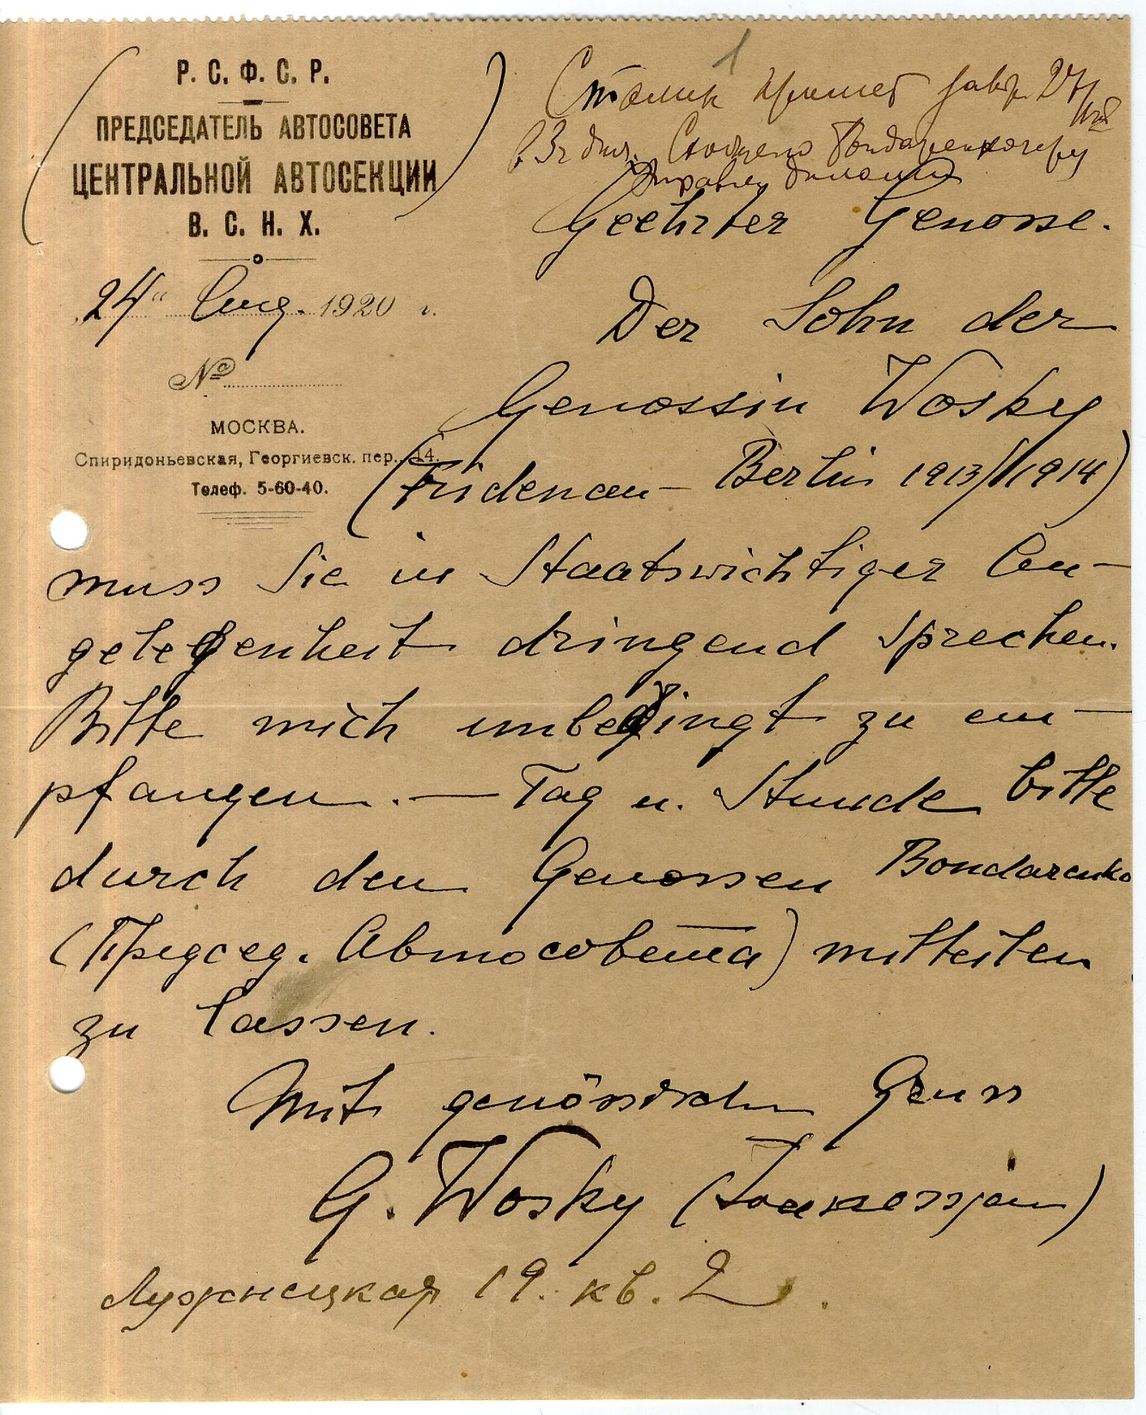 1
Р. С. Ф. С. Р.
ПРЕДСЕДАТЕЛЬ АВТОСОВЕТА
ЦЕНТРАЛЬНОЙ АВТОСЕКЦИИ
В. С. Н. Х.
„24“ Aug. 1920 г.
№
МОСКВА.
Спиридоньевская, Георгиевск. пер., 14.
Телеф. 5-60-40.
Сталин примет 27/VIII
в 3 ч дня.
Geehrter Genosse.
Der Sohn der
Genossin Wosky
(Fridenau – Berlin 1913/1914)
muss Sie in Staatswichtiger An-
gelegenheit dringend sprechen.
Bitte mich unbedingt zu em-
pfangen. — Tag u. Stunde bitte
durch den Genossen Bondarenko
(Председ. Автосовета) mitteilen
zu lassen.
Mit genössischen Gruss
G. Wosky
Лужнецкая 19. кв. 2.